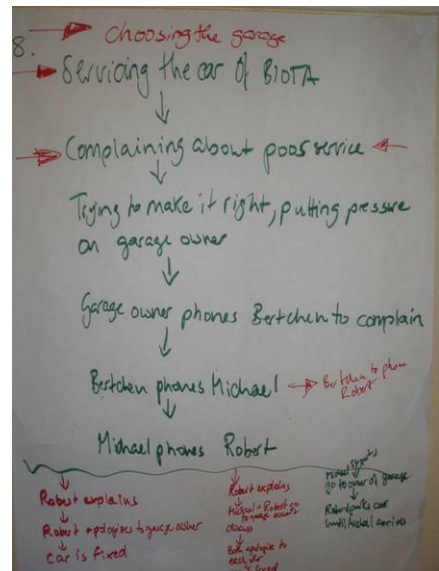 8.
Choosing the garage
Servicing the car of BIOTA
Complaining about poor service
Trying to make it right, putting pressure
on garage owner
Garage owner phones Bertchen to complain
Bertchen phones Michael
Bertchen to phone
Robert
Michael phones Robert
Robert explains
Robert apologises to garage owner
Car is fixed
Robert explains
Michael + Robert go
to garage
discuss
Both apologise to
each other
go to owner of garage
Robert car
until Michael arrives